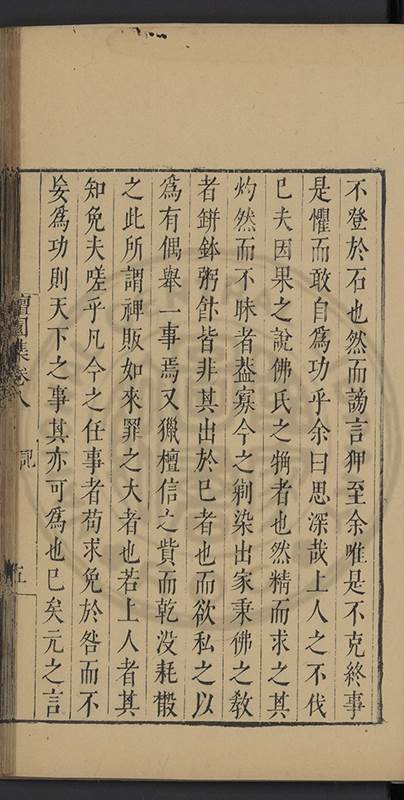 不登於石也然而謗言狎至余唯是不克終事
是懼而敢自爲功乎余曰思深哉上人之不伐
已夫因果之說佛氏之觕者也然精而求之其
灼然而不昧者葢寡今之剃染出家秉佛之敎
者鉼鉢粥飰皆非其出於已者也而欲私之以
爲有偶舉一事焉又獵檀信之貲而乾没耗散
之此所謂禆販如來罪之大者也若上人者其
知免夫嗟乎凡今之任事者苟求免於咎而不
妄爲功則天下之事其亦可爲也已矣元之言
檀園集 卷八 記 五